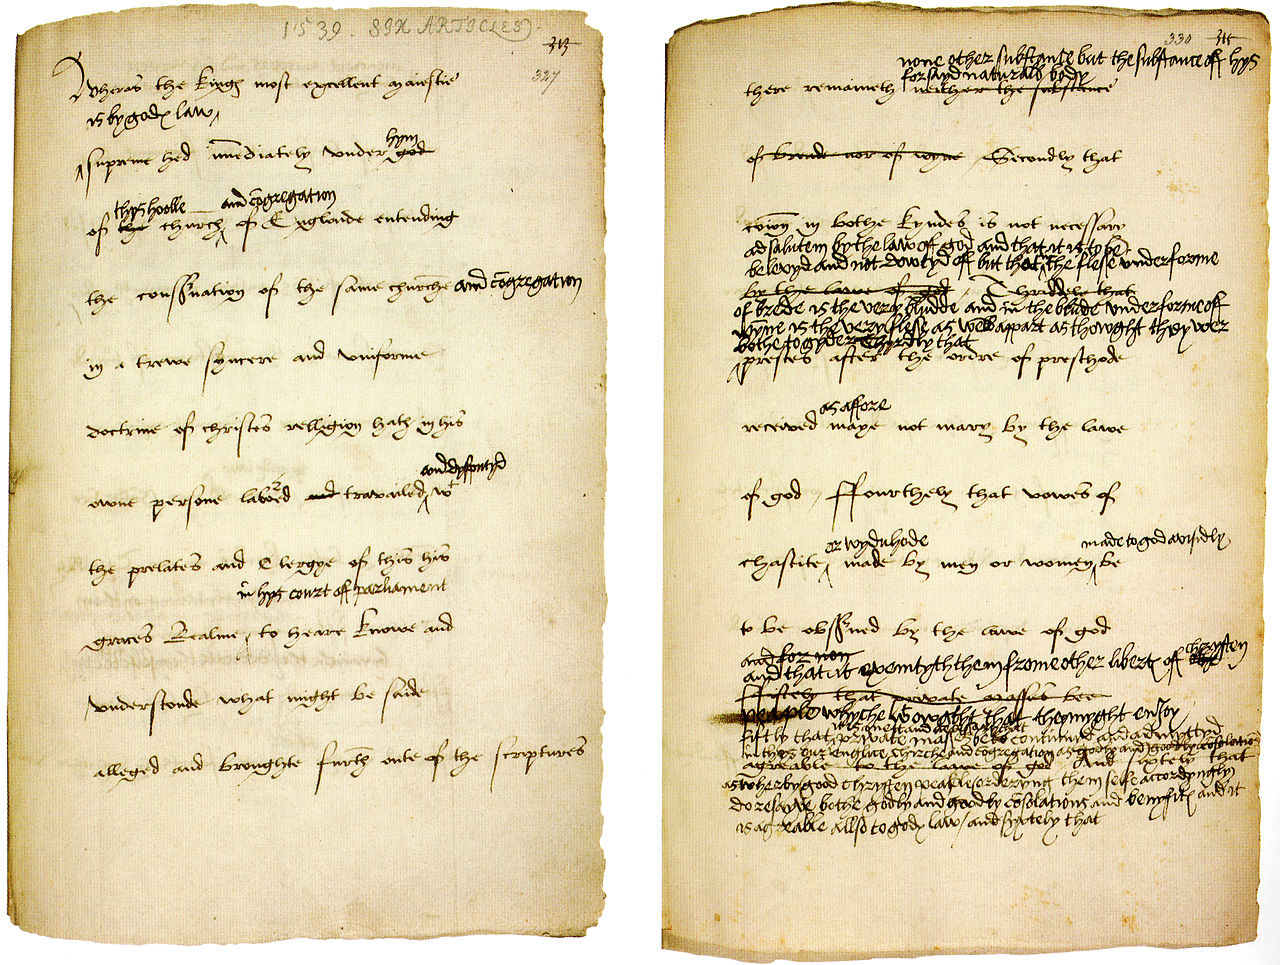 1539. SIX ARTICLES).
313
327
Wheras the kings most excellent maiestie
is by gods law
supreme hed imediately under god
hym
thys hoolle and cōgregation
of the church of Englande entending
the conservation of the same churche and cōgregation
in a trewe syncere and uniforme
doctrine of christes relligion hath in his
and dysputyd
owne persone labored and travailed wt
the prelates and clergye of this his
in hys court off parliament
graces Realme, to heare knowe and
understonde what might be saide
alleged and broughte furth oute of the scriptures
330 315
none other substance but the substance off hys
forsayd naturall body
there remaineth neither the substance
of brede nor of wyne / Secondly that
cōion in bothe kyndes is not necessary
ad salutem by the law off god and that it is to be
belevyd and not dowtyd off but that the flese under forme
by the lawe of god / Thriddely that
of brede is the very bludde and in the blude under forme off
wyne is the very flese as well appart as thowght they wer
bothe togyder Thyrdly that
prestes after the ordre of presthode
as affore
received maye not mary by the lawe
of god / Ffourthely that vowes of
or wyduhode made to god avisidly
chastite made by men or women be
to be observed by the lawe of god
and for non
and that it exemtyth them frome other liberts off chrysten
Fiftely that private masses bee
people whyche wowght that they myght enjoy
fiftly that private masses be cōtinuid and admyttyd
in thys our englice chyrche and cōgregation as godly and goodly cōsolations
agreable to the lawe of god And sixtely that
as wherby good chrysten peaple orderyng them selfe accordyngly
do resayve bothe godly and goodly cōsolations and benyfits and it
is agreable allso to gods law / and syxtely that